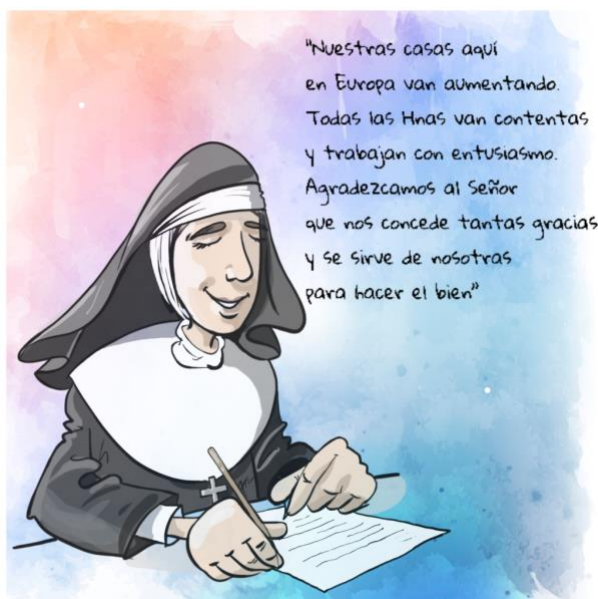 "Nuestras casas aquí
en Europa van aumentando.
Todas las Hnas van contentas
y trabajan con entusiasmo.
Agradezcamos al Señor
que nos concede tantas gracias
y se sirve de nosotras
para hacer el bien"